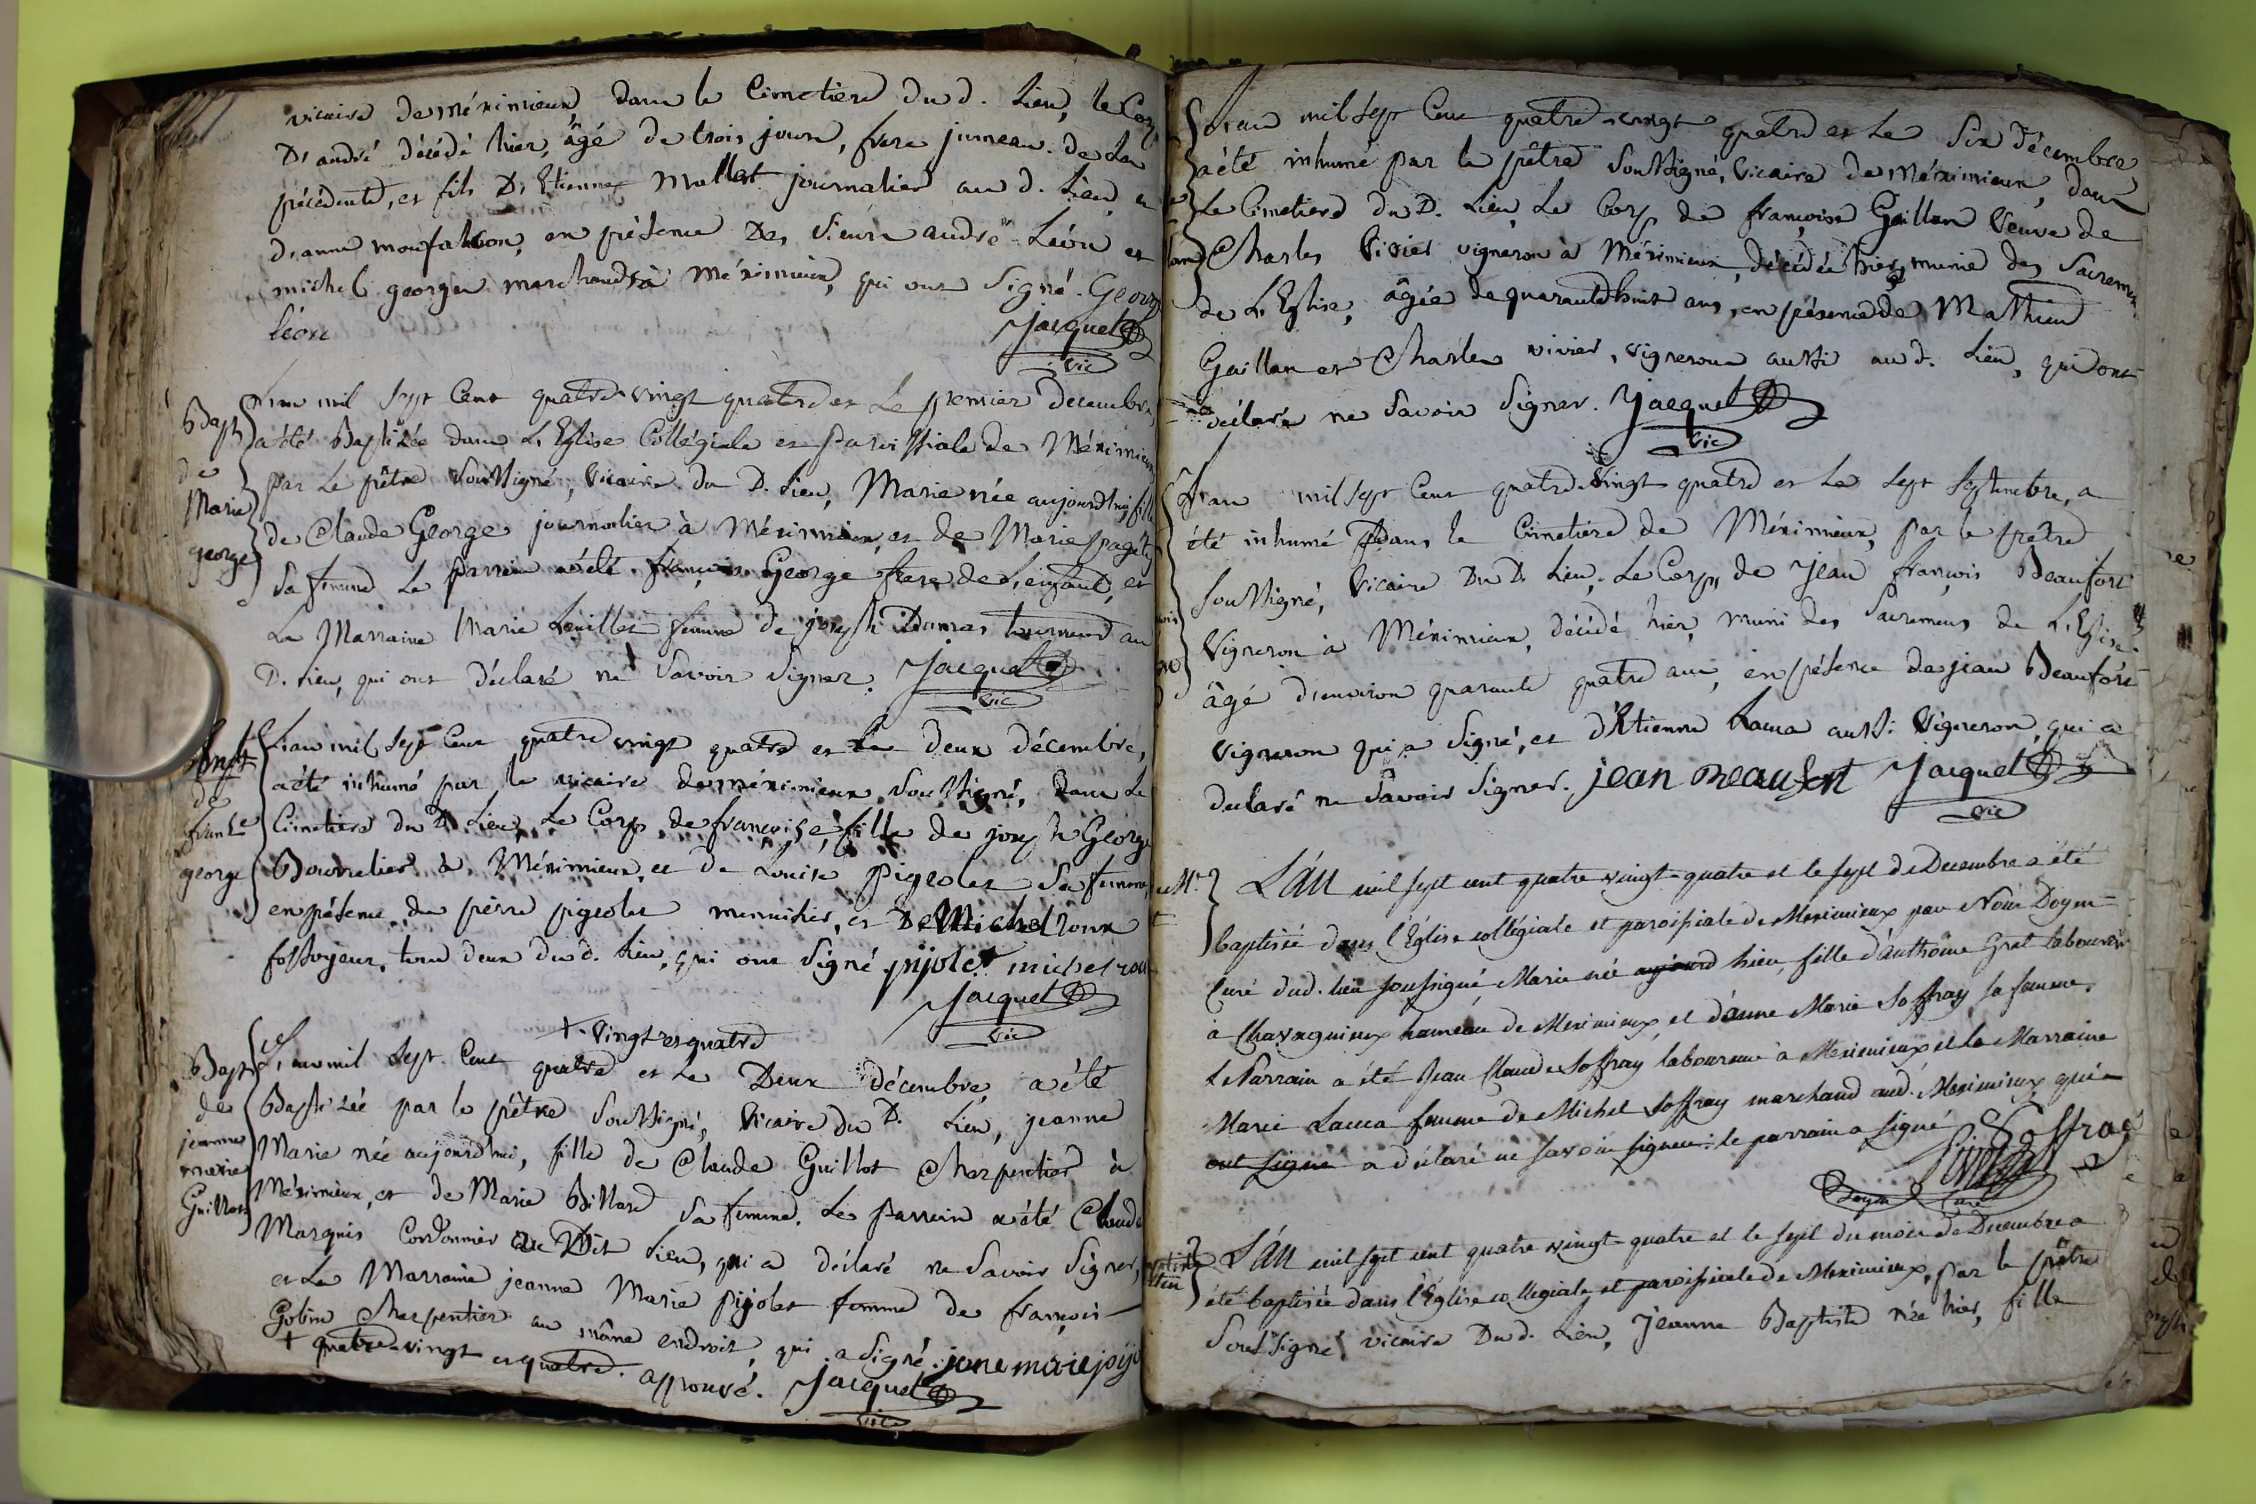 vicaire de méximieux, dans le Cimetiere du d. Lieu, le Corps
D'andré décédé hier, âgé de trois jours, frere jumeau de La
précédente, et fils D'Etienne Mollet journalier au d. Lieu, et
d'anne monfalcon, en présence Des sieurs andré Léon et
michel george marchands à Méximieux, qui ont Signé. George
léon Jacquet
vic
Bapt
de
Marie
george
L'an mil sept Cent quatre-vingt quatre et Le premier Decembre,
a été Baptisée dans L'Eglise Collégiale et Paroissiale de Méximieux
par Le prêtre Soussigné, Vicaire du D. Lieu, Marie née aujourdhui, fille
de Claude George journalier à Méximieux, et de Marie pagét
Sa femme Le parrein a été françois George frere de L'enfant, et
La Marraine Marie Leuillet femme de joseph Dumas tourneur au
D. Lieu, qui ont déclaré ne Savoir Signer. Jacquet
vic
de
franse
george
L'an mil sept Cent quatre vingt quatre et Le deux décembre,
a été inhumé par le vicaire de méximieux Soussigné, dans Le
Cimetiere du D. Lieu, Le Corps de françoise, fille de joseph George
Bourrelier à Méximieux, et de Louise Pigeolet Sa femme,
en présence de pierre pigeolet menuisier, et De Michel roux
fossoyeur, tous deux du d. Lieu, qui ont Signé. pijolet michel roux
Jacquet
vic
+ vingt et quatre
Bapt
de
jeanne
marie
Guillot
L'an mil sept Cent quatre et Le Deux décembre, a été
Baptisée par le prêtre Soussigné, Vicaire du D. Lieu, jeanne
Marie née aujourdhui, fille de Claude Guillot Charpentier à
Méximieux, et de Marie Billard Sa femme. Le parrein a été Claude
Marquis Cordonnier au Dit Lieu, qui a déclaré ne Savoir Signer,
et La Marraine jeanne Marie pijolet femme de françois
Gobin Charpentier au même endroit, qui a Signé. jane marie pijo
+ quatre-vingt et quatre. approuvé. Jacquet
vic
L'an mil sept Cent quatre-vingt quatre et Le Six Décembre,
a été inhumé par le prêtre Soussigné, Vicaire de Méximieux, dans
Le Cimetiere du D. Lieu, Le Corps de françoise Gaillan Veuve de
Charles Vivier vigneron à Méximieux, décédée hier, munie des Sacremens
de L'Eglise, âgée de quarante huit ans, en présence de Mathieu
Gaillan et Charles vivier, vignerons aussi au d. Lieu, qui ont
déclaré ne Savoir Signer. Jacquet
vic
L'an mil sept Cent quatre-Vingt quatre et Le sept Septembre, a
été inhumé dans le Cimetiere de Méximieux, par le prêtre
Soussigné, Vicaire Du D. Lieu, Le Corps de Jean françois Beaufort
Vigneron à Méximieux, décédé hier, muni des Sacremens de L'Eglise
âgé d'environ quarante quatre ans, en présence de jean Beaufort
vigneron qui a Signé, et d'Etienne Lacua aussi Vigneron, qui a
declaré ne Savoir Signer. jean Beaufort Jacquet
vic
L'An mil sept cent quatre vingt-quatre et le sept de Decembre a été
baptisée dans l'Eglise collégiale et paroissiale de Meximieux par Nous Doyen
Curé dud. lieu soussigné Marie née aujourd hier, fille d'anthoine Gret laboureur
à Chavagnieux hameau de Meximieux, et d'anne Marie Soffray sa femme.
Le Parrain a été Jean Claude Soffray laboureur à Meximieux et la Marraine
Marie Lacua femme de Michel Soffray marchand aud. Meximieux, qui a
ont signé a déclaré ne savoir signer: le parrain a signé Soffray
Doyen Curé
L'An mil sept cent quatre vingt-quatre et le sept du mois de Decembre a
été baptisée dans l'Eglise collegiale et paroissiale de Meximieux, par le prêtre
Soussigné, vicaire Du d. Lieu, Jeanne Baptiste née hier, fille